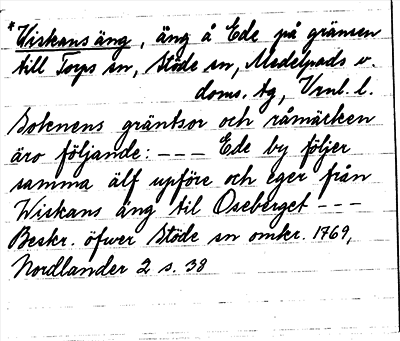 *Wiskans äng, äng å Ede på gränsen
till Torps sn, Stöde sn, Medelpads v.
doms. tg, Vrnl. l.
Soknens gräntsor och råmärken
äro följande: --- Ede by följer
samma älf upföre och eger från
Wiskans äng til Oxeberget ---
Beskr. öfwer Stöde sn omkr. 1769,
Nordlander 2 s. 38